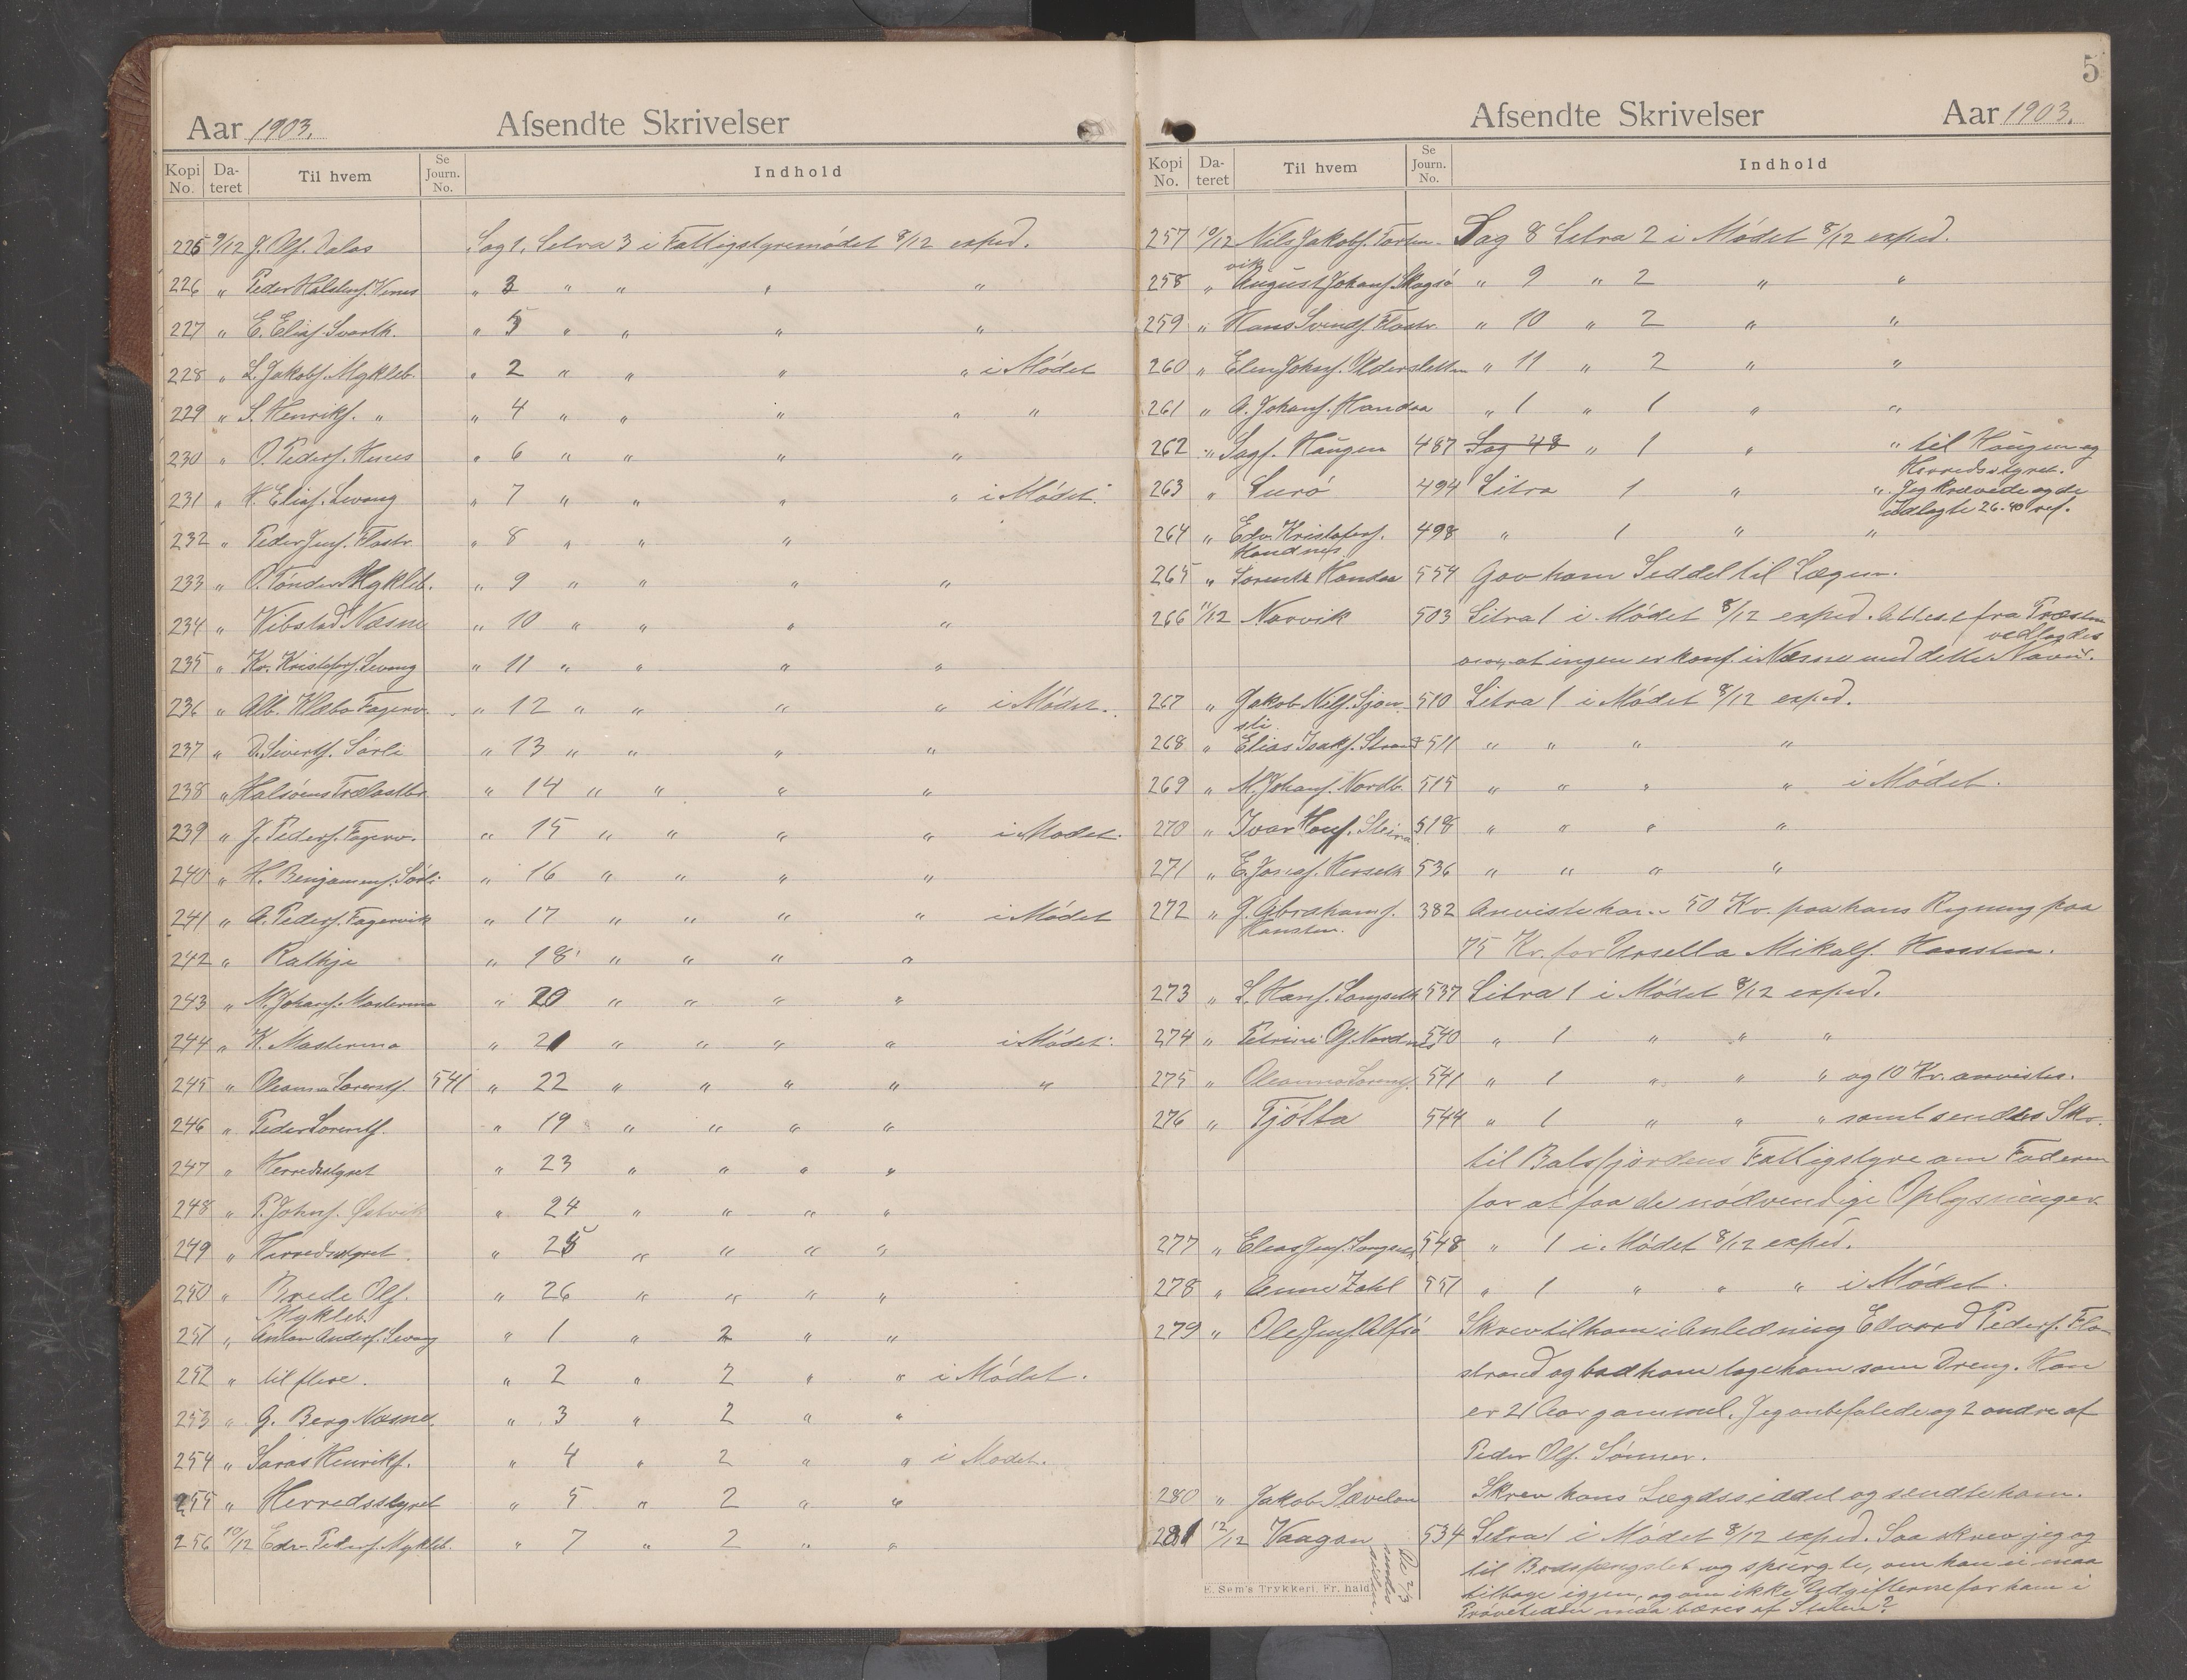 Aar 1903. Afsendte Skrivelser
Kopi No. Da-teret Til hvem Se Journ. No. Indhold
225 9/12 J. Ols. Dalos Sag 1, Litra 3 i Fattigstyremødet 8/12 exped.
226 " Peder " 3 " " " "
227 " E. Elias. Svarth. " 5 " " " "
228 " L. Jakobs. Mykleb. " 2 " " " " i Mødet
229 " S. Henriks. " " 4 " " " " "
230 " O. Peders. " 6 " " " "
231 " H. Elias. Levang " 7 " " " " i Mødet.
232 " Peder Jens. Flostr. " 8 " " "
233 " O. Tønder Mykleb. " 9 " " " "
234 " Vibstad Næsne " 10 " " " "
235 " Kr. Kristofers. Levang " 11 " " " "
236 " Alb. Klæbo Fagerv. " 12 " " " " i Mødet.
237 " D. Siverts. Sørli " 13 " " " "
238 " Halsøens Trælastbr. " 14 " " " "
239 " J. Peders. Fagerv. " 15 " " " " i Mødet.
240 " H. Benjamins. Sørli " 16 " " " "
241 " A. Peders. Fagervik " 17 " " " " i Mødet
242 " Rathje " 18 " " " "
243 " N. Johans. Masterma " 20 " " " "
244 " K. Masterma " 21 " " " " i Mødet.
245 " Oleanna Lorents. 541 " 22 " " " " "
246 " Peder Lorents. " 19 " " " "
247 " Herredsstyret " 23 " " " "
248 " P. Johns. Østvik " 24 " " " "
249 " Herredsstyret " 25 " " " "
250 " Brede Ols. " 26 " " " "
Mykleb.
251 " Anton Anders. Levang " 1 " 2 " "
252 " til flere. " 2 " 2 " " i Mødet.
253 " G. Berg Næsne. " 3 " 2 " "
254 " Saras Henriks. " 4 " 2 " " i Mødet.
255 " Herredsstyret " 5 " 2 " "
256 10/12 Edv. Peders. Mykleb. " 7 " 2 " "
5
Afsendte Skrivelser Aar 1903.
Kopi No. Da-teret Til hvem Se Journ. No. Indhold
257 10/12 Nils Jakobs. Torsn- Sag 8 Litra 2 i Mødet 8/12 exped.
vik
258 " August Johans. Skogsø " 9 " 2 " "
259 " Hans Svends. Flostr. " 10 " 2 " "
260 " Elen Johns. " 11 " 2 " "
261 " A. Johans. Handaa " 1 " 1 " "
262 " Sagf. Haugen 487 Sag 48 " 1 " " til Haugen og
Herredsstyret.
263 " Lurø 494 Litra 1 " " Jeg krævede og de
udlagte 26.40 ref.
264 " Edv. Kristofers. 498 " 1 " "
Handnes.
265 " Lorents Handaa 554 Gav ham Seddel til Lægen.
266 11/12 Narvik 503 Litra 1 i Mødet 8/12 exped. Attest fra Præsten
vedlagdes
om, at ingen er konf. i Næsne med dette Navn.
267 " Jakob Nils. Sjon- 510 Litra 1 i Mødet 8/12 exped.
sli
268 " Elias Isaks. Strand 511 " " " "
269 " M. Johans. Nordb. 515 " " " " i Mødet.
270 " Ivar Hans. Steira 518 " " " "
271 " E. Jonas. Herseth 536 " " " "
272 " J. Abrahams. 382 Anviste ham 50 Kr. paa hans Regning paa
Hansten.
75 Kr. for Ursella Mikals. Hansten.
273 " L. Hans. Langseth 537 Litra 1 i Mødet 8/12 exped.
274 " Petrine Ols. Nordnes 540 " 1 " " "
275 " Oleanna Lorents. 541 " 1 " " " og 10 Kr. anvistes.
276 " Tjøtta 544 " 1 " " " samt sendtes Skr.
til Balsfjordens Fattigstyre om Faderen
for at faa de nødvendige Oplysninger.
277 " Elias Jens. Langseth 548 " 1 i Mødet 8/12 exped.
278 " Anne Zahl 551 " 1 " " " i Mødet.
279 " Ole Jens. Alfsø Skrev til ham i Anledning Edvard Peders. Flo-
strand og bad ham tage ham som Dreng. Han
er 21 Aar gammel. Jeg anbefalede og 2 andre af
Peder Ols. Sønner.
280 " Jakob Skrev hans Lægdsseddel og sendte ham.
281 12/12 Vaagan 534 Litra 1 i Mødet 8/12 exped. Saa skrev jeg og
til Bodsfængslet og spurgte, om han ei maa
tilbage igjen, og om ikke Udgifterne for ham i
Prøvetiden maa bæres af Staten?
E. Sem's Trykkeri, Fr.hald.